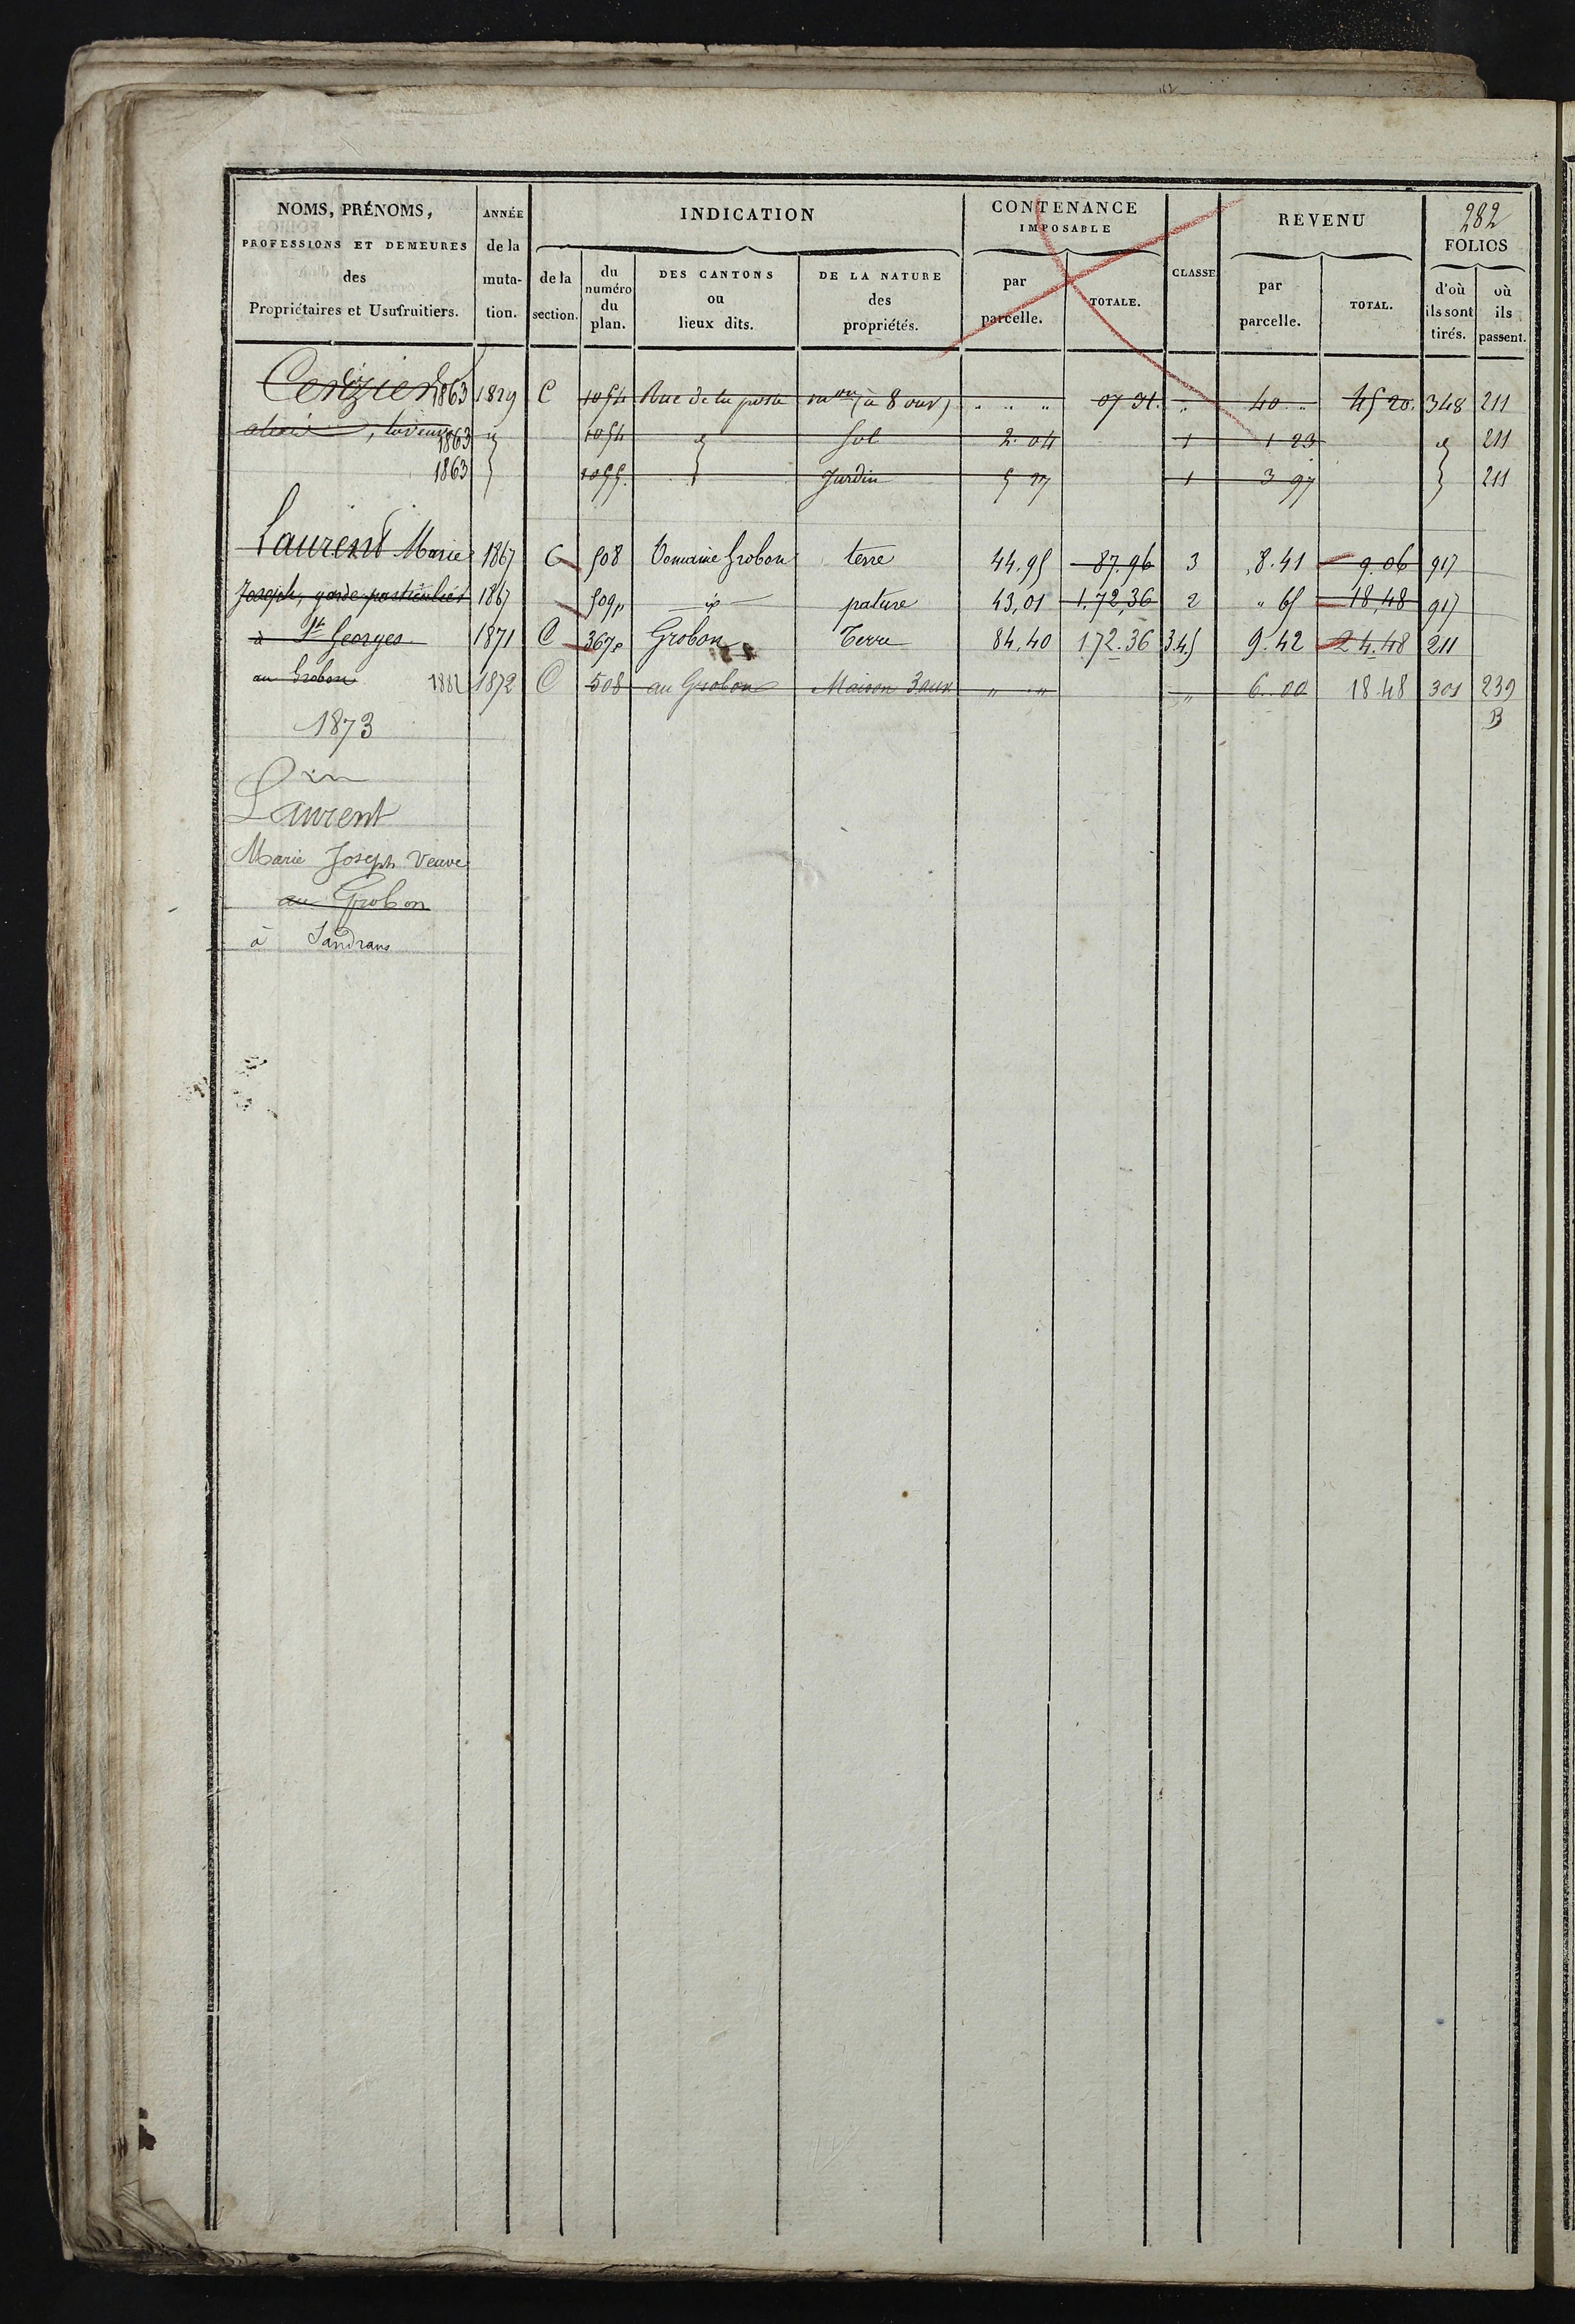 282
NOMS, PRÉNOMS, PROFESSIONS ET DEMEURES des Propriétaires et Usufruitiers.
ANNÉE de la muta- tion.
INDICATION
de la section.
du numéro du plan.
DES CANTONS ou lieux dits.
DE LA NATURE des propriétés.
CONTENANCE IMPOSABLE
par parcelle.
TOTALE.
CLASSE
REVENU
par parcelle.
TOTAL.
FOLIOS
d'où ils sont tirés.
où ils passent.
Cerizier 1863 1829 C 1054 Rue de la poste on (à 8 ouv) " " " 07 31. " 40 " 45 20. 348 211
la veuve 1863 1054 Sol 2. 04 1 1 23 211
1863 1055. Jardin 5 27 1 3 97 211
Laurent Marie 1867 C 508 Domaine Grobon terre 44.95 87.96 3 8.41 9.06 917
Joseph, garde particulier 1867 509p id pature 43,01 1.72,36 2 " 65 18,48 917
à St Georges 1871 C 367p Grobon Terre 84,40 172.36 3.4.5 9.42 24.48 211
au Grobon 1882 1872 C 508 au Grobon Maison 3 ouv " " " 6.00 18.48 301 239
B
1873
Laurent
Marie Joseph Veuve
au Grobon
à Sandrans